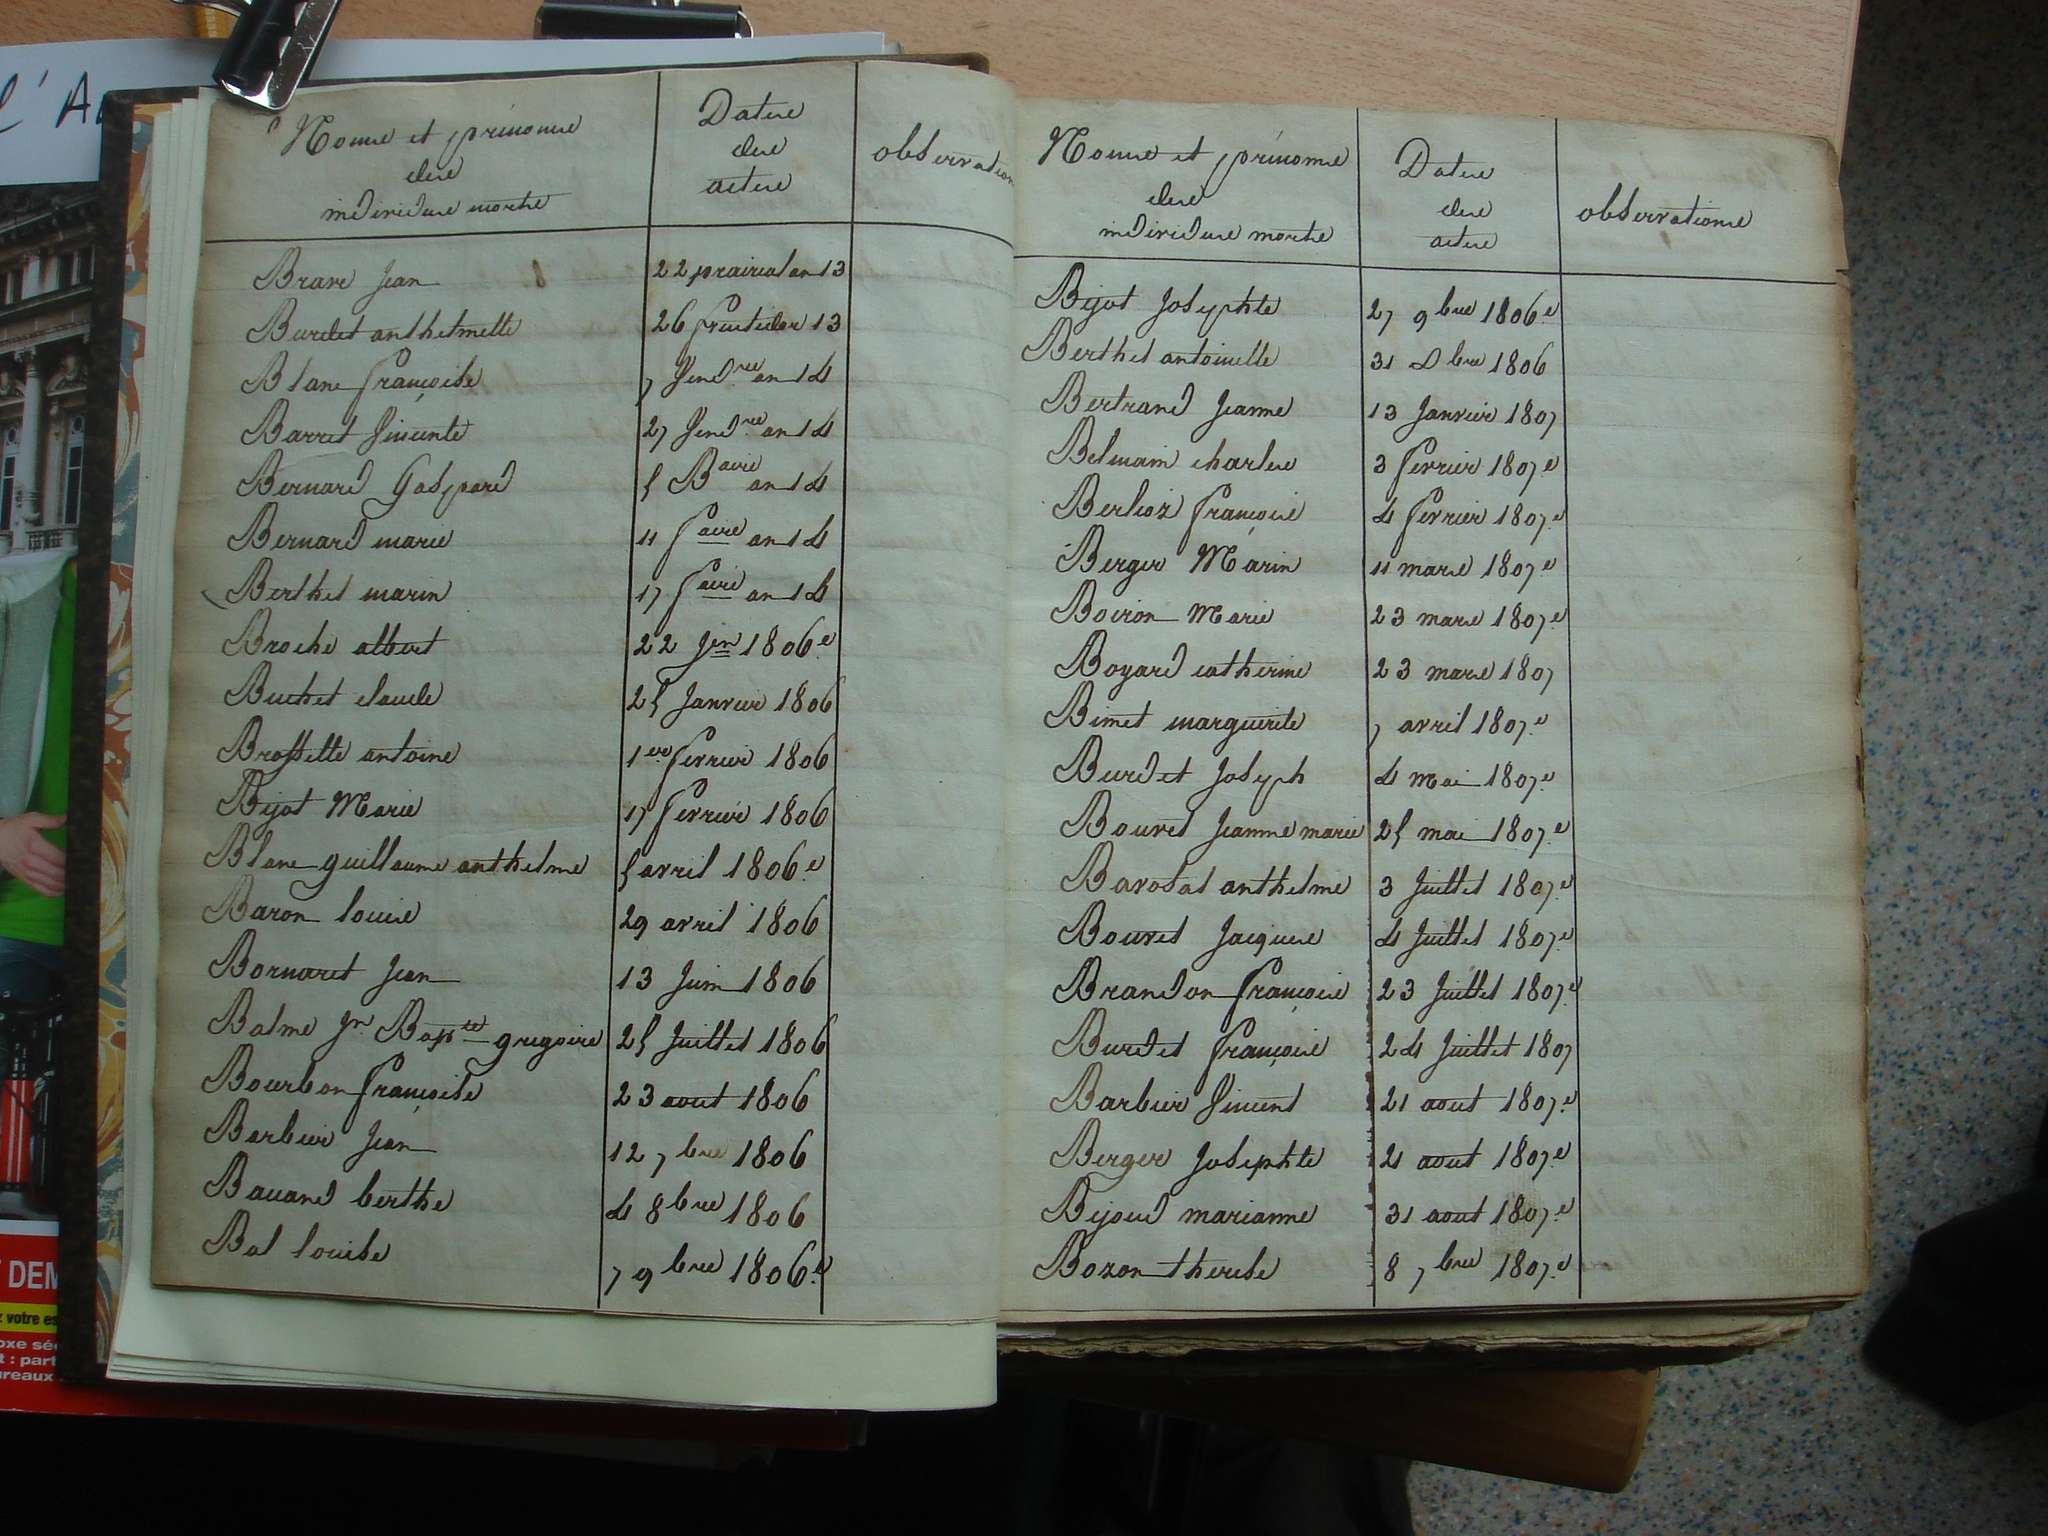 l'A
Noms et prénoms
des
individus morts
Dates
des
actes
observations
Brave Jean 22 prairial an 13
Burdet anthelmette 26 fructidor 13
Blanc françoise 7 Vend.re an 14
Barret Vincente 27 Vend.re an 14
Bernard Gaspard 5 B aire an 14
Bernard marie 11 f aire an 14
Berthet marin 17 f aire an 14
Broche albert 22 Jen 1806
Buchet claude 25 Janvier 1806
Brossette antoine 1er fevrier 1806
Bijot Marie 17 fevrier 1806
Blanc guillaume anthelme 5 avril 1806
Baron louis 29 avril 1806
Bornaret Jean 13 Juin 1806
Balme Jn Bapte gregoire 25 Juillet 1806
Bourbon françoise 23 aout 1806
Barbier Jean 12 7bre 1806
Bavand berthe 4 8bre 1806
Bal louise 7 9bre 1806
Noms et prénoms
des
individus morts
Dates
des
actes
observations
Bijot Josephte 27 9bre 1806
Berthet antoinette 31 Dbre 1806
Bertrand Jeanne 13 Janvier 1807
Belmain charles 3 fevrier 1807
Berlioz françois 4 fevrier 1807
Berger Marin 11 mars 1807
Boiron Marie 23 mars 1807
Boyard catherine 23 mars 1807
Bimet marguerite 7 avril 1807
Burdet Joseph 4 Mai 1807
Bouvet Jeanne marie 25 mai 1807
Bavosat anthelme 3 Juillet 1807
Bouvet Jacques 4 Juillet 1807
Brandon françois 23 Juillet 1807
Burdet françois 24 Juillet 1807
Barbier Vincent 21 aout 1807
Berger Josephte 21 aout 1807
Bijoud marianne 31 aout 1807
Bozon therese 8 7bre 1807
DEM
z votre es
oxe sé
t : part
ureaux